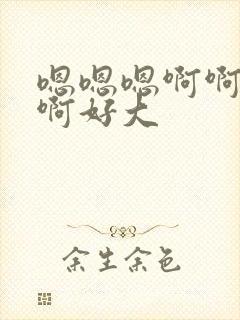 嗯嗯嗯啊啊
啊好大
余生余色